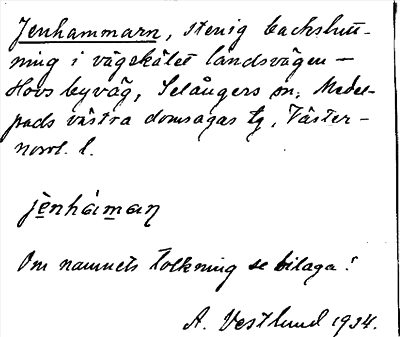 Jenhammarn, stenig backslutt-
ning i vägskälet landsvägen —
Hovs byväg, Selångers sn, Medel-
pads västra domsagas tg, Väster-
norrl. l.
jènháman
Om namnets tolkning se bilaga!
A. Vestlund 1934.